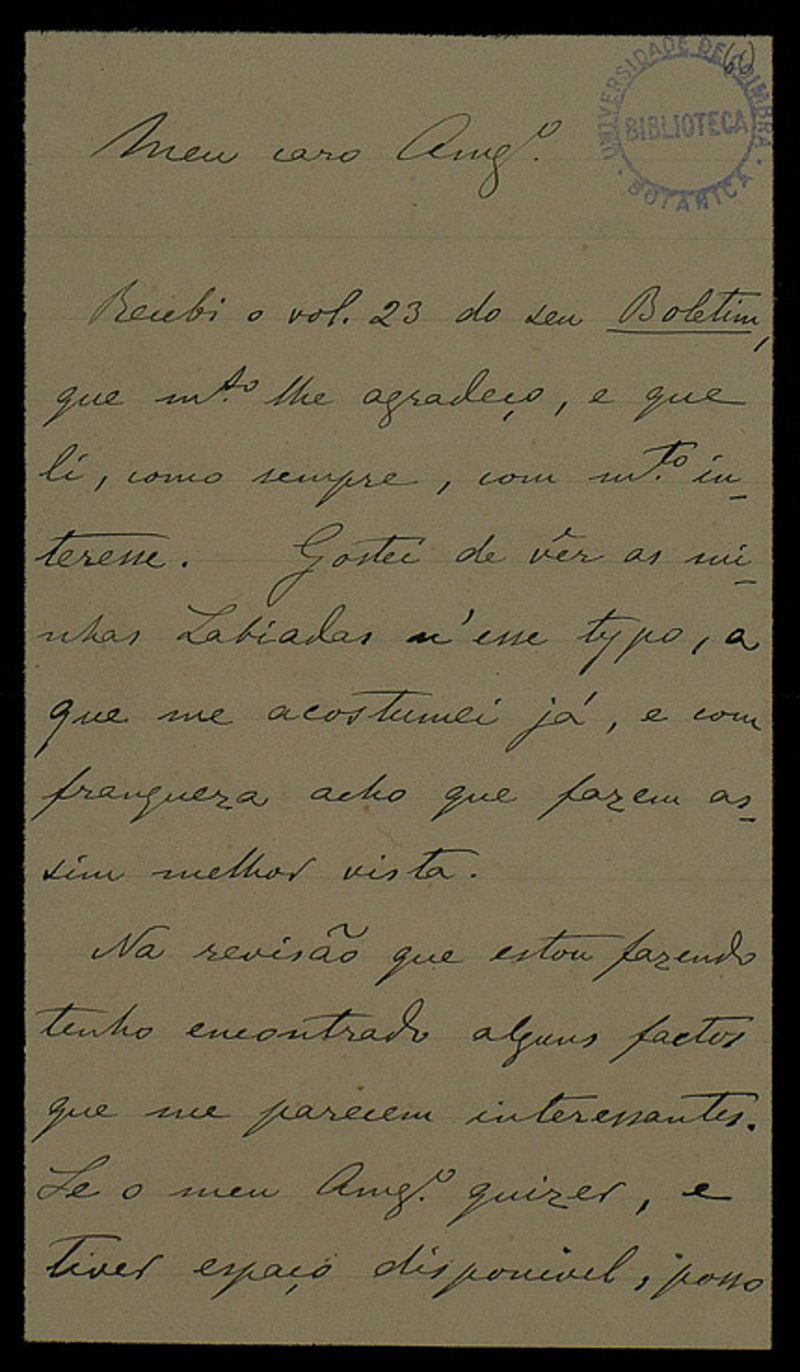 (66)
UNIVERSIDADE DE COIMBRA
BIBLIOTECA
BOTANICA
Meu caro Amg.º
Recebi o vol. 23 do seu Boletim,
que m.to lhe agradeço, e que
li, como sempre, com m.to in-
teresse. Gostei de vêr as mi-
nhas Labiadas n'esse typo, a
que me acostumei já, e com
franqueza acho que fazem as-
sim melhor vista.
Na revisão que estou fazendo
tenho encontrado alguns factos
que me parecem interessantes.
Se o meu Amg.º quizer, e
tiver espaço disponivel, posso